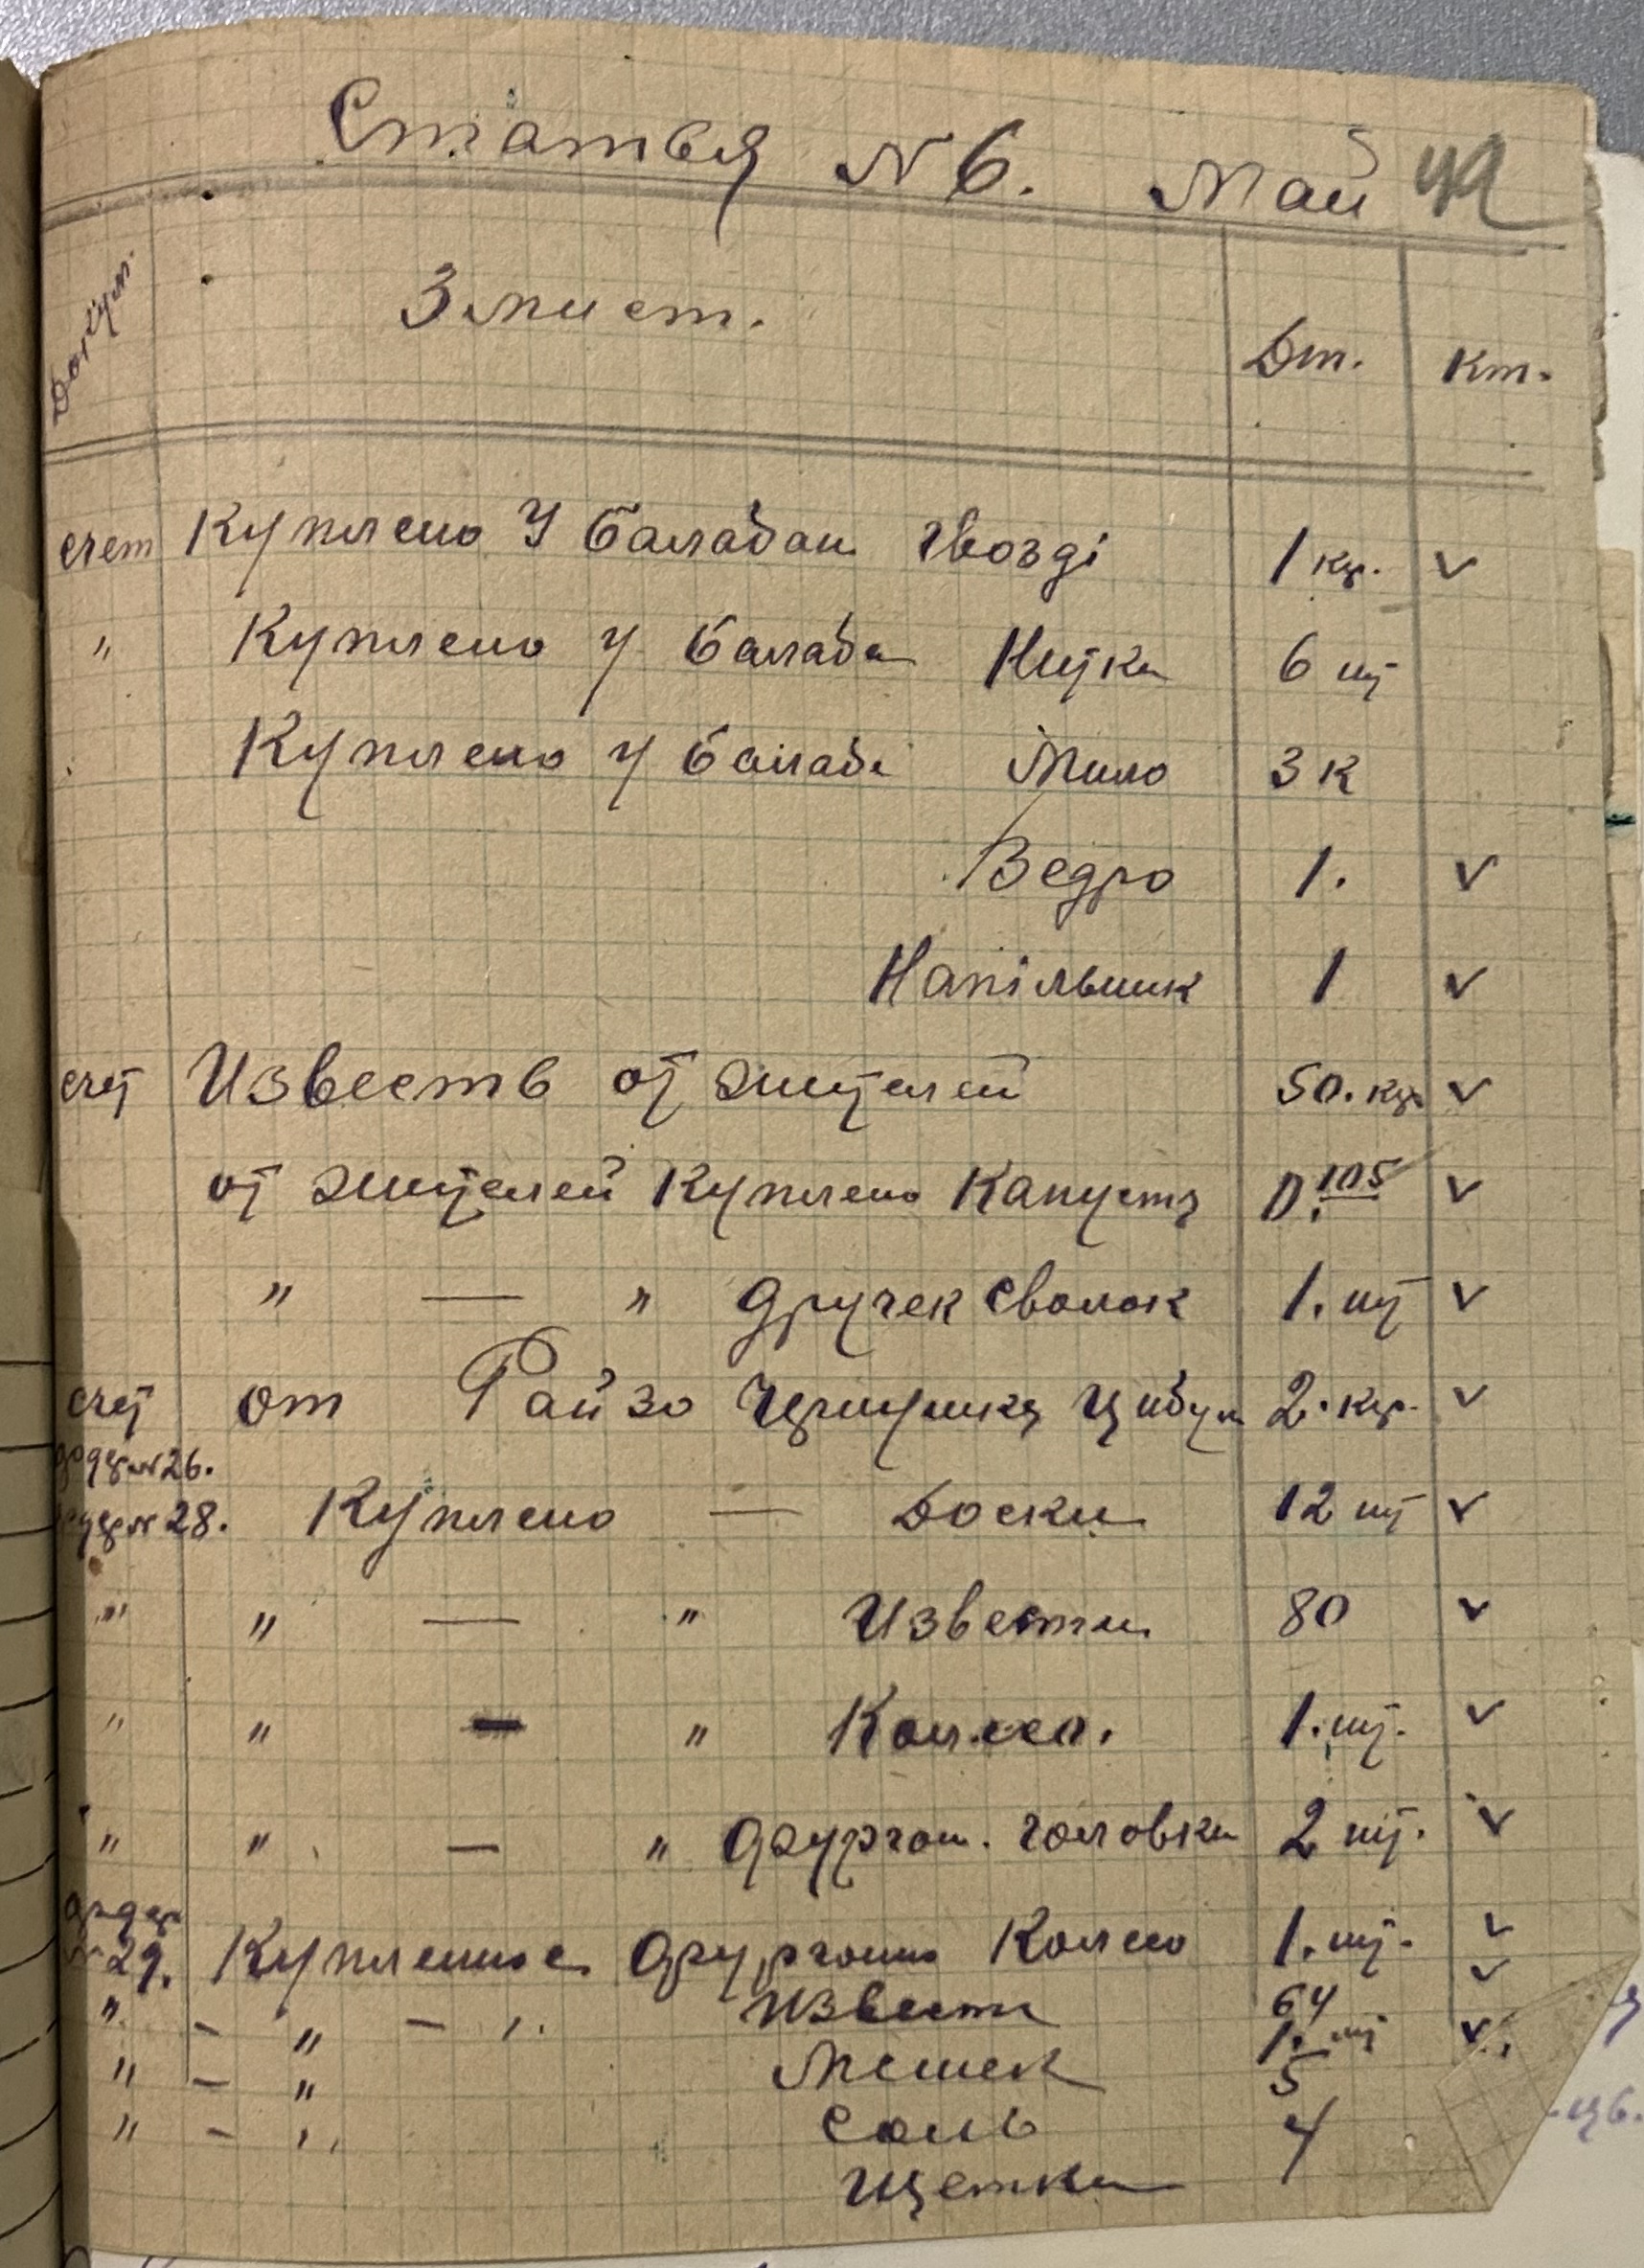 Статья N 6. Май 42
Докум. Змист. Дт. Кт.
счет Куплено У Балабан гвозді 1 кг. v
" Куплено у Балаба Нитки 6 шт
Куплено у Балаба Мило 3 к
Ведро 1. v
Напільник 1 v
счет Известь от жителей 50. кг. v
от жителей Куплено Капусты 0.105 v
" — " дручек сволок 1. шт v
счет от Райзо Цибул 2. кг. v
ордер N 26.
ордер N 28. Куплено — Доски 12 шт v
" " — " Извести 80 v
" " — " Колесо. 1. шт. v
" " — " фургон. головки 2 шт. v
ордер
N 29. Купленное фургонно Колесо 1. шт. v
" - " - " Извести 64 v
" - " Мешек 1. шт v
" - " Соль 5
Щетки 4